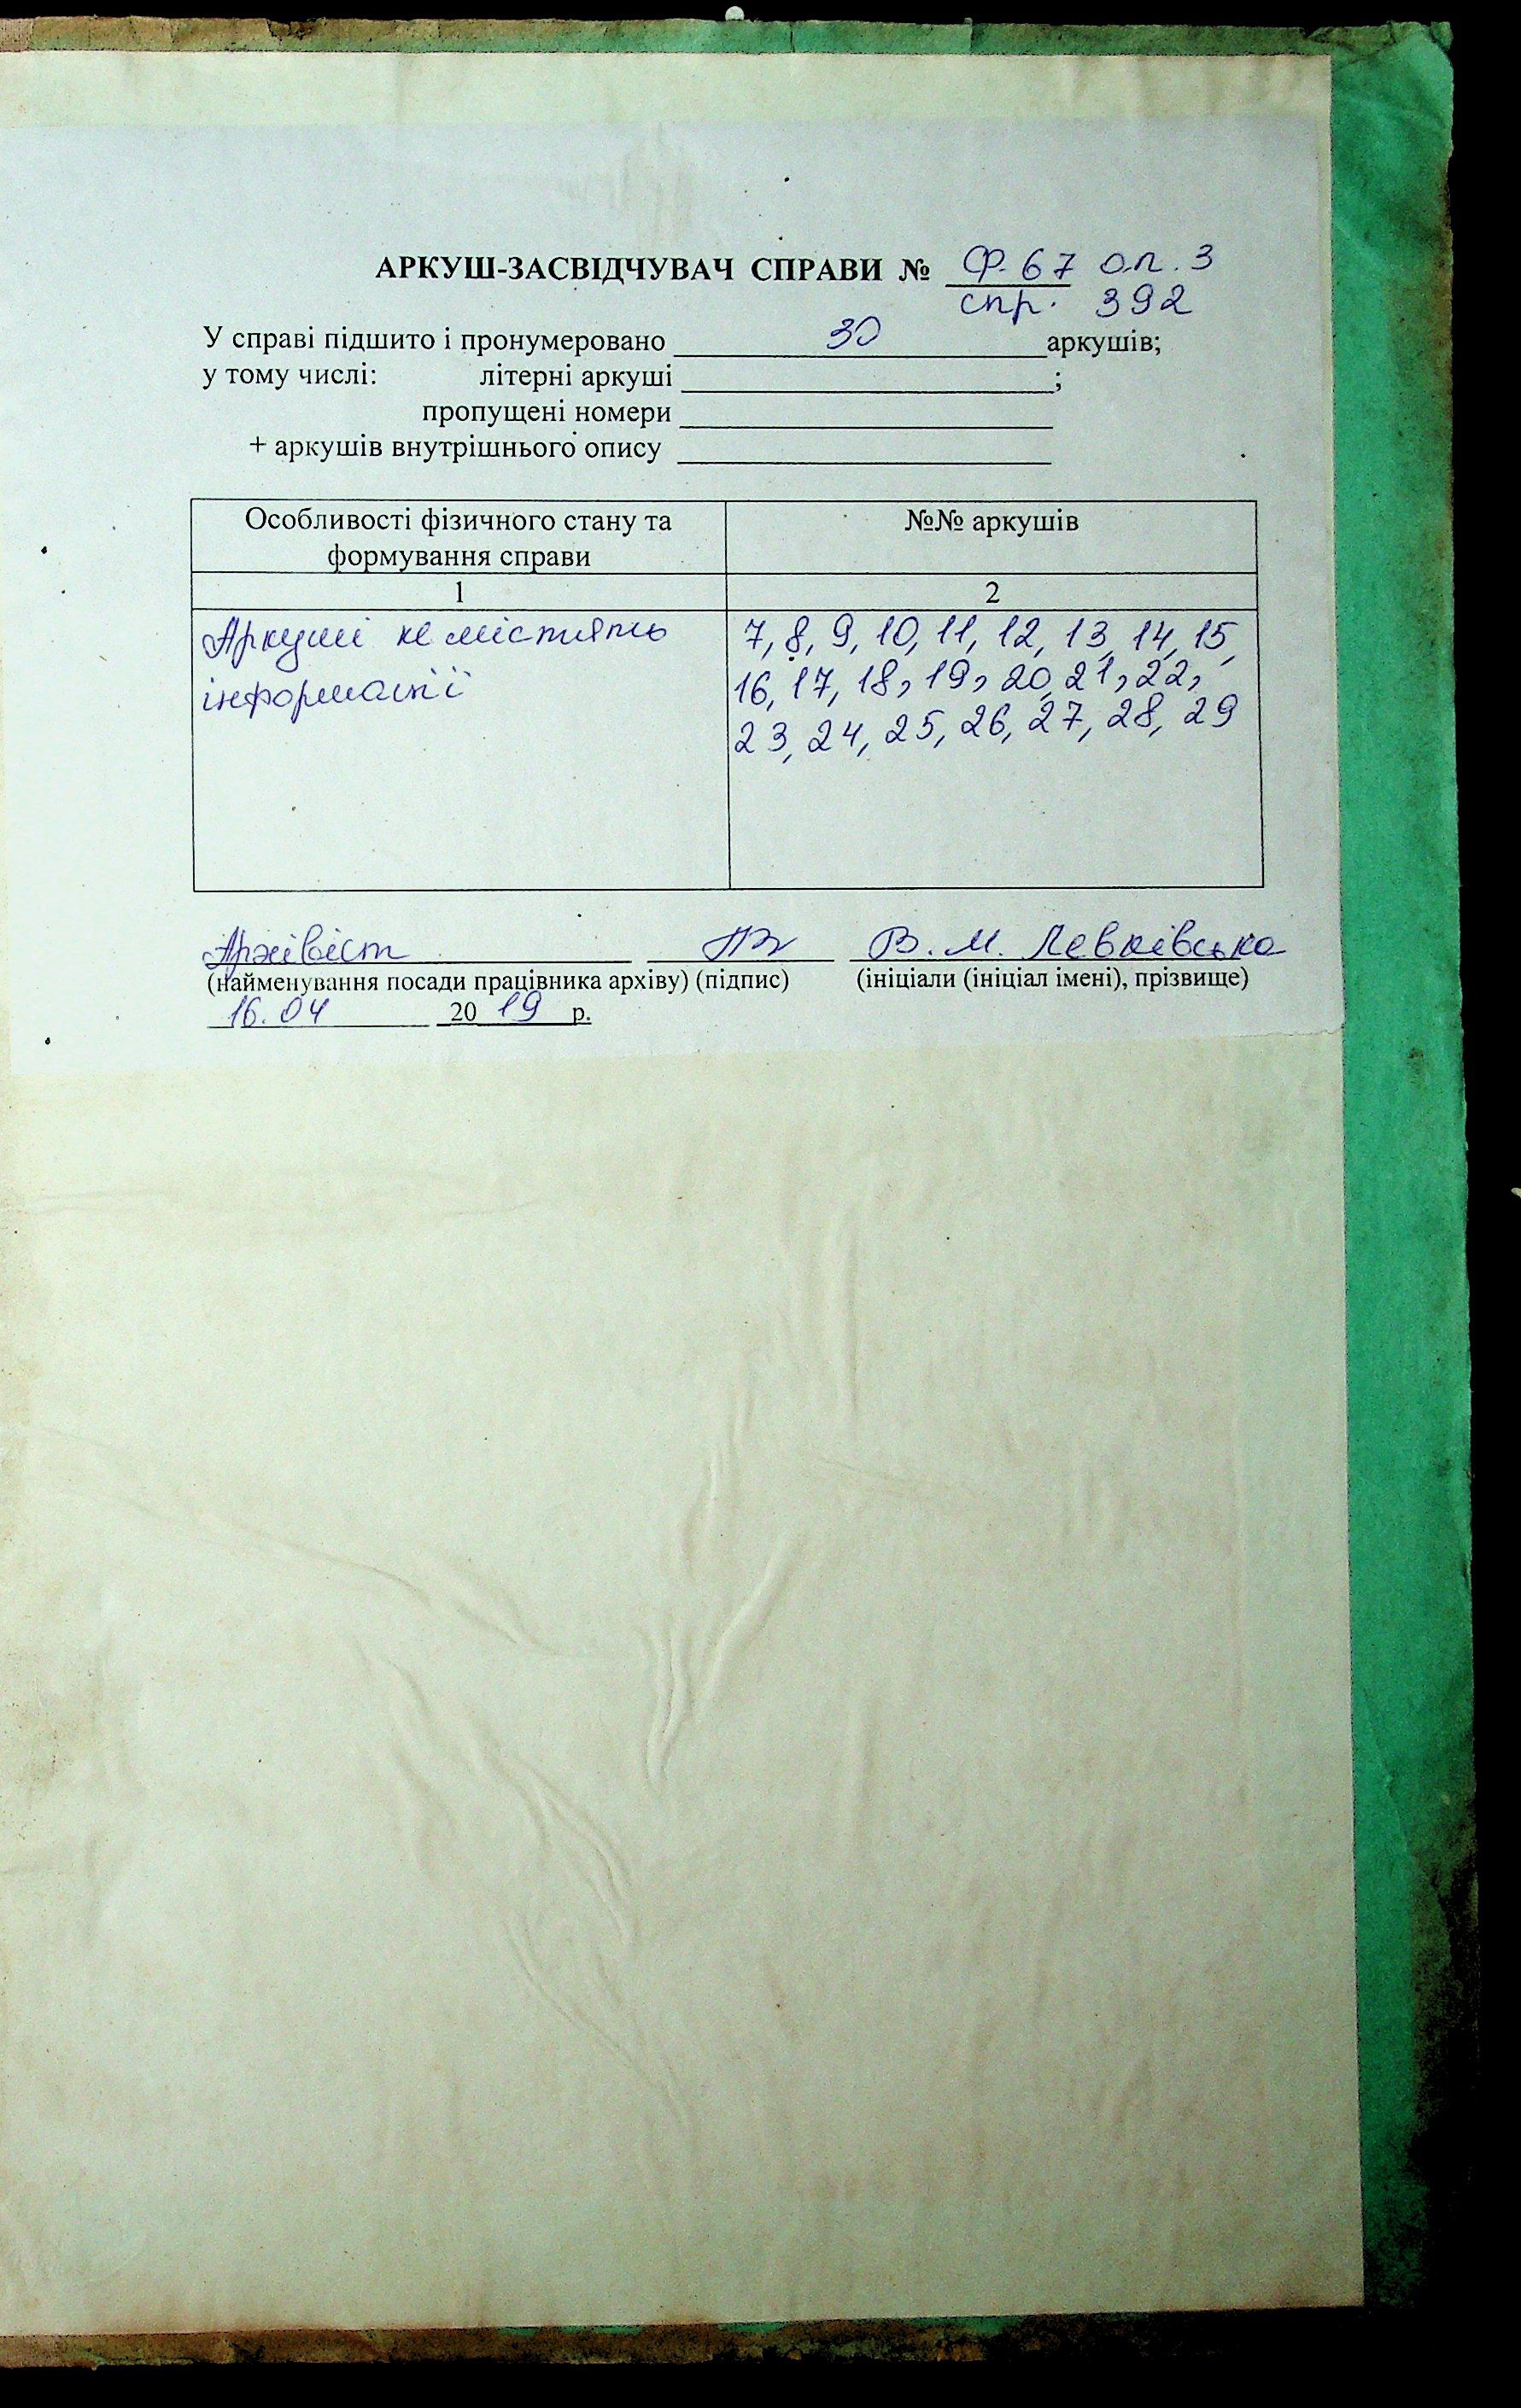 АРКУШ-ЗАСВІДЧУВАЧ СПРАВИ № Ф. 67 оп. 3
спр. 392
У справі підшито і пронумеровано 30 аркушів;
у тому числі: літерні аркуші ;
пропущені номери
+ аркушів внутрішнього опису
Особливості фізичного стану та №№ аркушів
формування справи
1 2
Аркуші не містять 7, 8, 9, 10, 11, 12, 13, 14, 15,
інформації 16, 17, 18, 19, 20, 21, 22,
23, 24, 25, 26, 27, 28, 29
Архівіст В. М. Левківська
(найменування посади працівника архіву) (підпис) (ініціали (ініціал імені), прізвище)
16.04 2019 р.